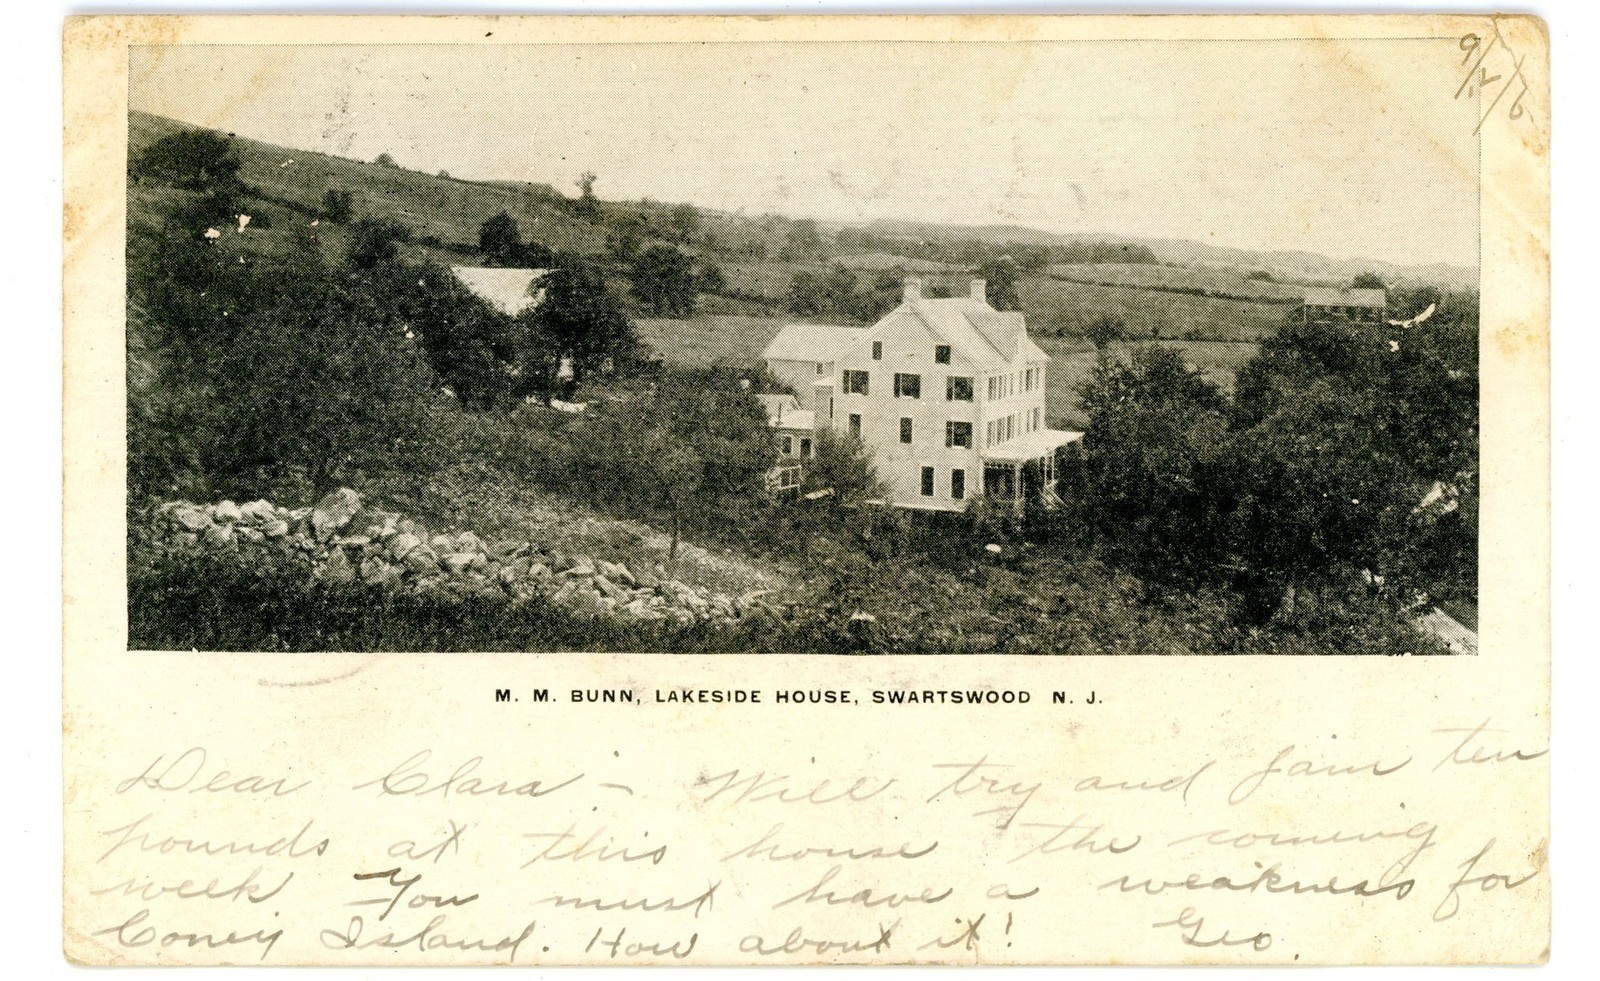 9/2/6
M. M. BUNN, LAKESIDE HOUSE, SWARTSWOOD N. J.
Dear Clara - Will try and gain ten
pounds at this house the coming
week You must have a weakness for
Coney Island. How about it! Geo.